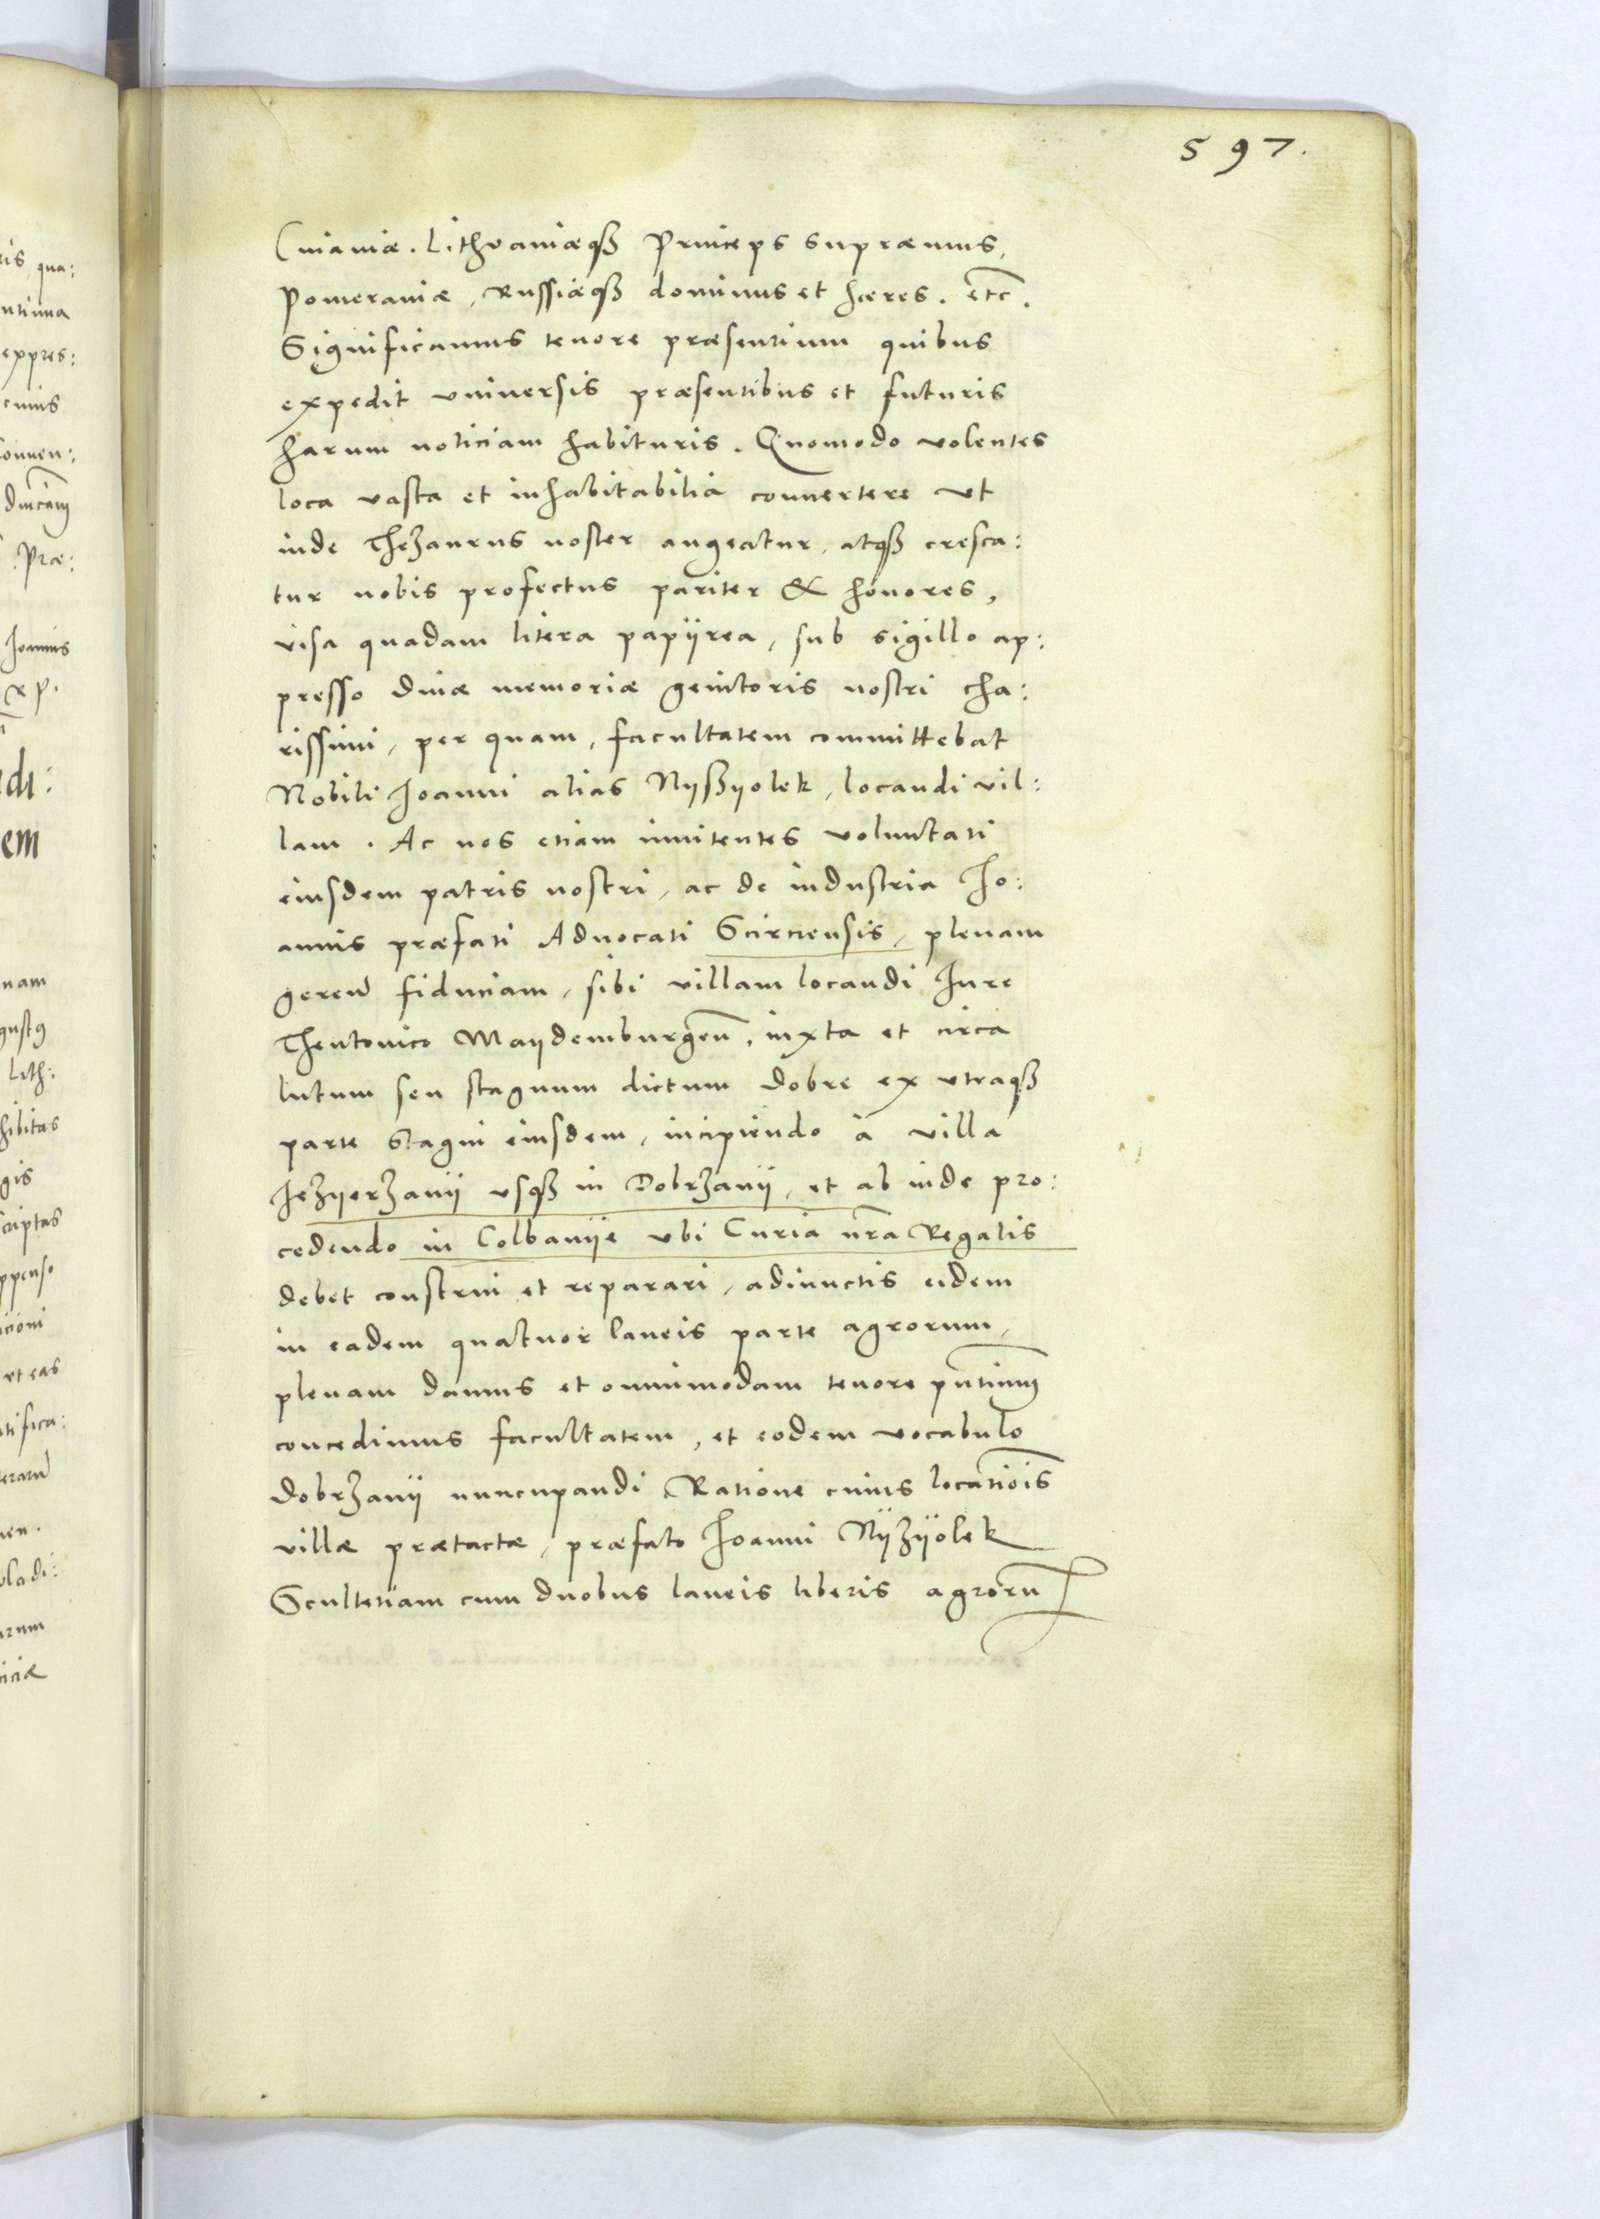 597.
Cuiauiæ. Lithvaniæqȝ Princeps supræmus,
Pomeraniæ, Russiæqȝ dominus et hæres. etc̄.
Significamus tenore præsentium quibus
expedit vniuersis præsentibus et futuris
harum noticiam habituris. Quomodo volentes
loca vasta et inhabitabilia conuertere vt
inde Thezaurus noster augeatur, atqȝ cresca:
tur nobis profectus pariter & honores,
visa quadam litera papijrea, sub sigillo ap:
presso diuæ memoriæ genitoris nostri cha:
rissimi, per quam, facultatem committebat
Nobili Joanni alias Nyßyolek, locandi vil:
lam. Ac nos etiam innitentes voluntati
eiusdem patris nostri, ac de industria Jo:
annis præfati Aduocati Scirciensis, plenam
geren̄ fiduciam, sibi villam locandi Jure
Theutonico Maydemburgen̄, iuxta et circa
lutum seu stagnum dictum Dobre ex vtraqȝ
parte Stagni eiusdem, incipiendo à villa
Jezyerzanij vsqȝ in Dobrzanij, et ab inde pro:
cedendo in Colbanije vbi Curia nr̄a Regalis
debet construi et reparari, adiunctis eidem
in eadem quatuor laneis parte agrorum,
plenam damus et omnimodam tenore pn̄tium
concedimus facultatem, et eodem vocabulo
Dobrzanij nuncupandi Ratione cuius locatiōis
villæ prætactæ, præfato Joanni Nyzyolek
Scultetiam cum duobus laneis liberis agrorū